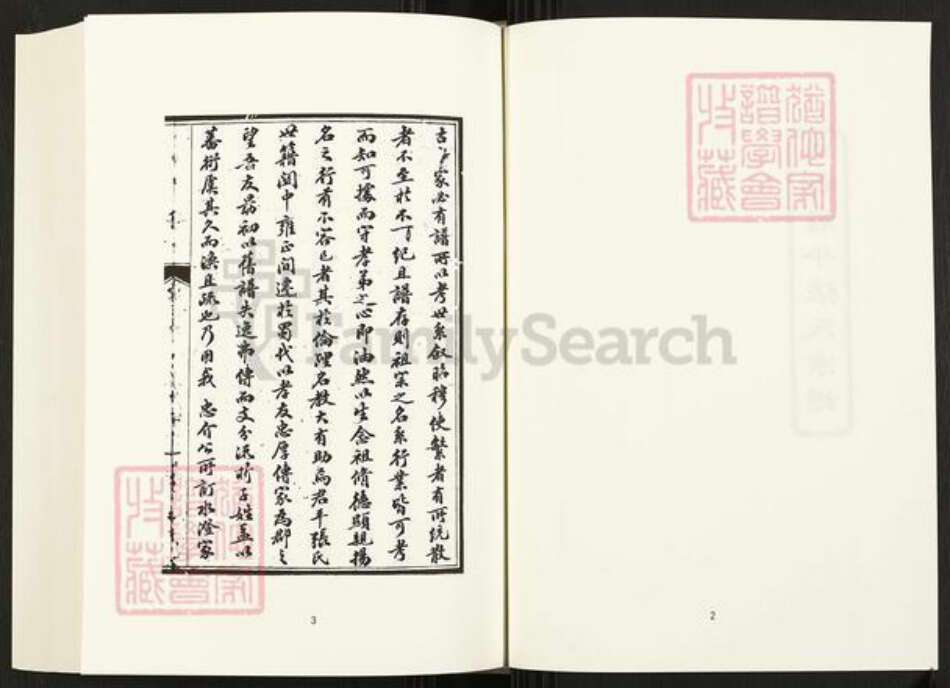 猶他家
譜學會
收藏
2
古之家必有譜所以考世系敘昭穆使繁者有所統散
者不至於不可紀且譜存則祖宗之名系行業皆可考
而知可據而守孝弟之心即油然以生念祖脩德顯親揚
名之行有不容已者其於倫理名教大有助焉君平張氏
世籍閩中雍正间遷於蜀代以孝友忠厚傳家為郡之
望吾友初以舊譜失逸而支分派析子姓益以
蕃衍虞其久而渙且疏也乃因我忠介公所訂水澄家
猶他家
譜學會
收藏
3
FamilySearch